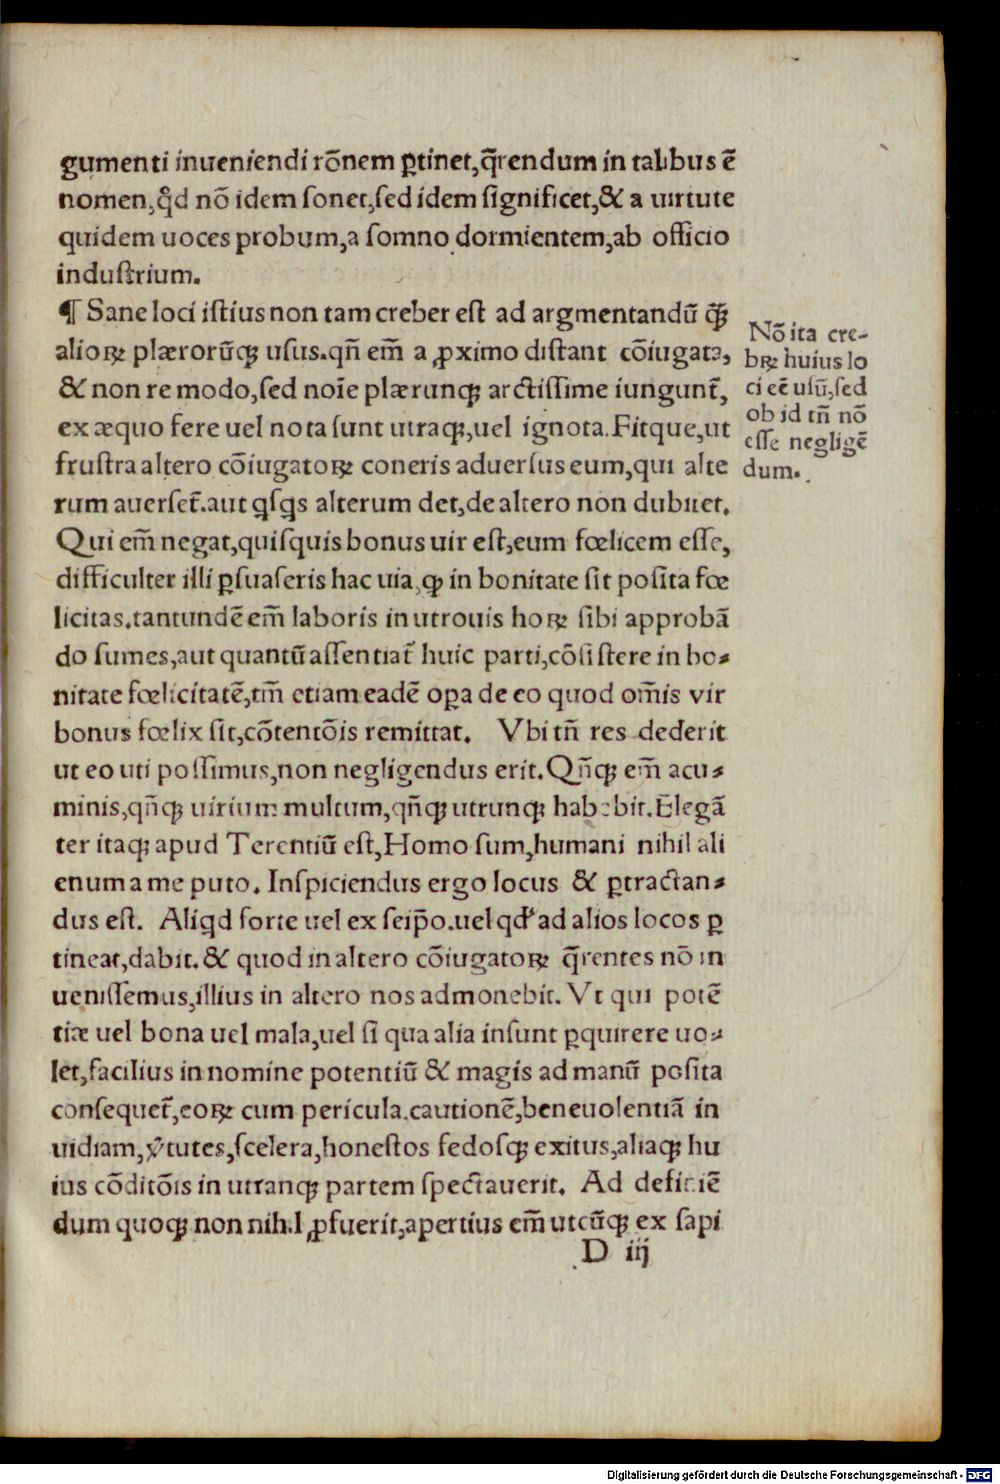 gumenti inueniendi rōnem ꝑtinet,q̄rendum in talibus ē
nomen,qͥd nō idem sonet,sed idem significet,& a uirtute
quidem uoces probum,a somno dormientem,ab officio
industrium.
¶ Sane loci istius non tam creber est ad argmentandū q̄ꝫ
alioꝝ plærorūqꝫ usus.qñ em̄ a ꝓximo distant cōiugata,
& non re modo,sed noīe plærunqꝫ arctissime iungunt̄,
ex æquo fere uel nota sunt utraqꝫ,uel ignota.Fitque,ut
frustra altero cōiugatoꝝ coneris aduersus eum,qui alte
rum auerset̄.aut qͥsqͥs alterum det,de altero non dubitet.
Qui em̄ negat,quisquis bonus uir est,eum fœlicem esse,
difficulter illi ꝑsuaseris hac uia,qꝫ in bonitate sit posita fœ
licitas.tantundē em̄ laboris in utrouis hoꝝ sibi approbā
do sumes,aut quantū assentiat̄ huic parti,cōsistere in bo-
nitate fœlicitatē,tm̄ etiam eadē oꝑa de eo quod om̄is vir
bonus fœlix sit,cōtentōis remittat. Vbi tñ res dederit
ut eo uti possimus,non negligendus erit.Qñqꝫ em̄ acu-
minis,qñqꝫ uirium multum,qñqꝫ utrunqꝫ habebit.Elegā
ter itaqꝫ apud Terentiū est,Homo sum,humani nihil ali
enum a me puto. Inspiciendus ergo locus & ꝑtractan-
dus est. Aliqͥd forte uel ex seip̄o.uel qd' ad alios locos ꝑ
tineat,dabit.& quod in altero cōiugatoꝝ q̄rentes nō in
uenissemus,illius in altero nos admonebit.Vt qui potē
tiæ uel bona uel mala,uel si qua alia insunt ꝑquirere uo-
let,facilius in nomine potentiū & magis ad manū posita
consequet̄,eoꝝ cum pericula.cautionē,beneuolentiā in
uidiam,v̓tutes,scelera,honestos fedosqꝫ exitus,aliaqꝫ hu
ius cōditōis in utranqꝫ partem spectauerit. Ad definiē
dum quoqꝫ non nihil ꝓfuerit,apertius em̄ utcūqꝫ ex sapi
D iij
Nō ita cre-
bꝝ huius lo
ci eē usū,sed
ob id tñ nō
esse negligē
dum.
Digitalisierung gefördert durch die Deutsche Forschungsgemeinschaft - DFG